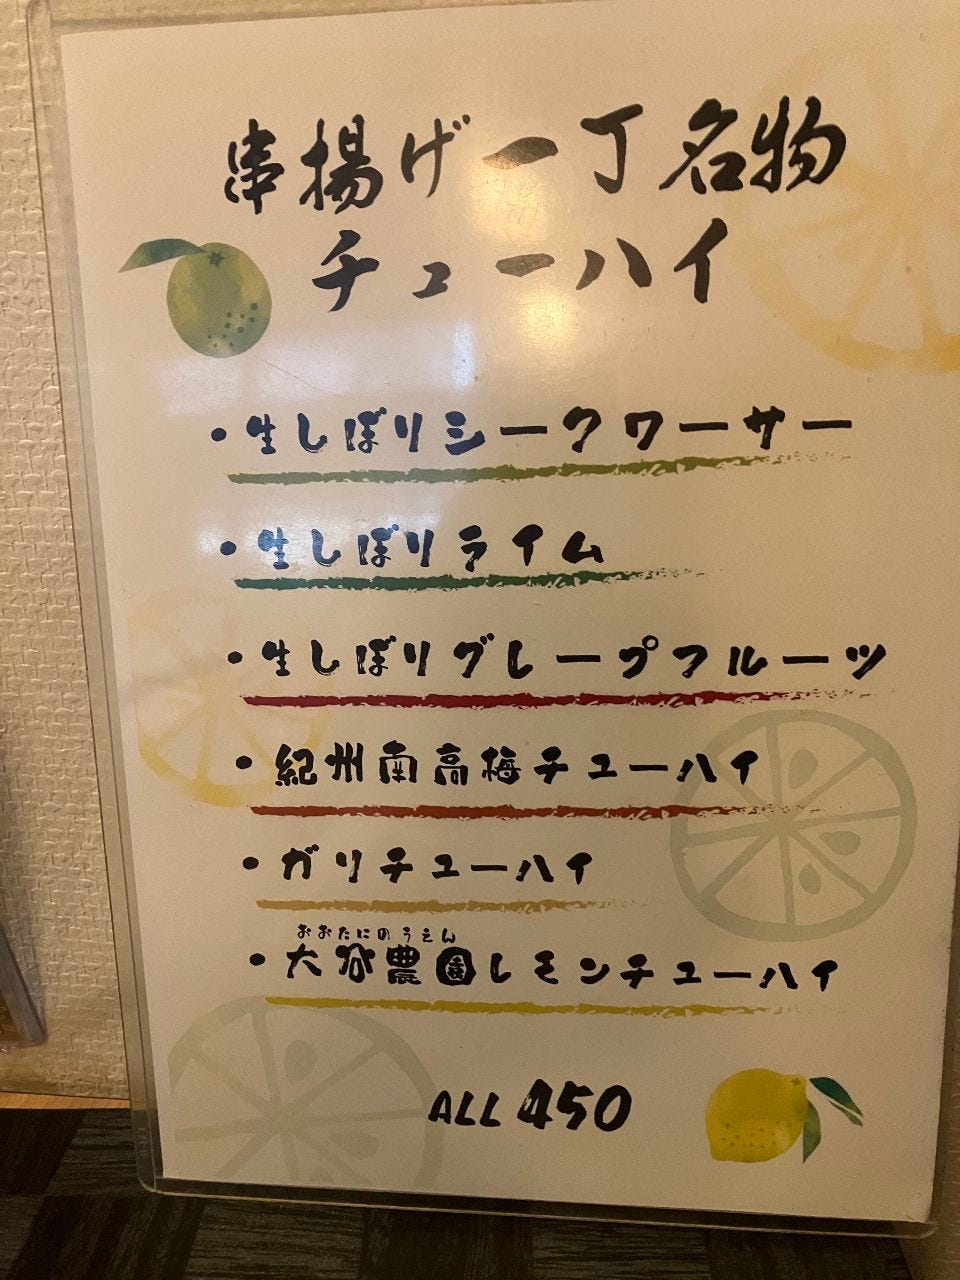 串揚げ一丁名物
チューハイ
・生しぼりシークワーサー
・生しぼりライム
・生しぼりグレープフルーツ
・紀州南高梅チューハイ
・ガリチューハイ
おおたにのうえん
・大谷農園レモンチューハイ
ALL 450